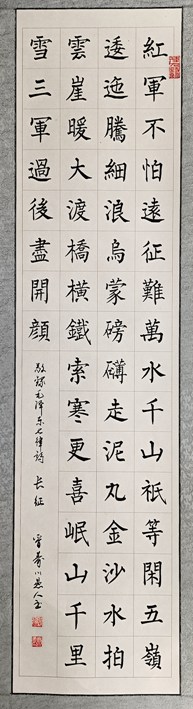 紅軍不怕遠征難萬水千山祇等閑五嶺
逶迤騰細浪烏蒙磅礴走泥丸金沙水拍
雲崖暖大渡橋橫鐵索寒更喜岷山千里
雪三軍過後盡開顔
敬錄毛澤东七律詩 長征